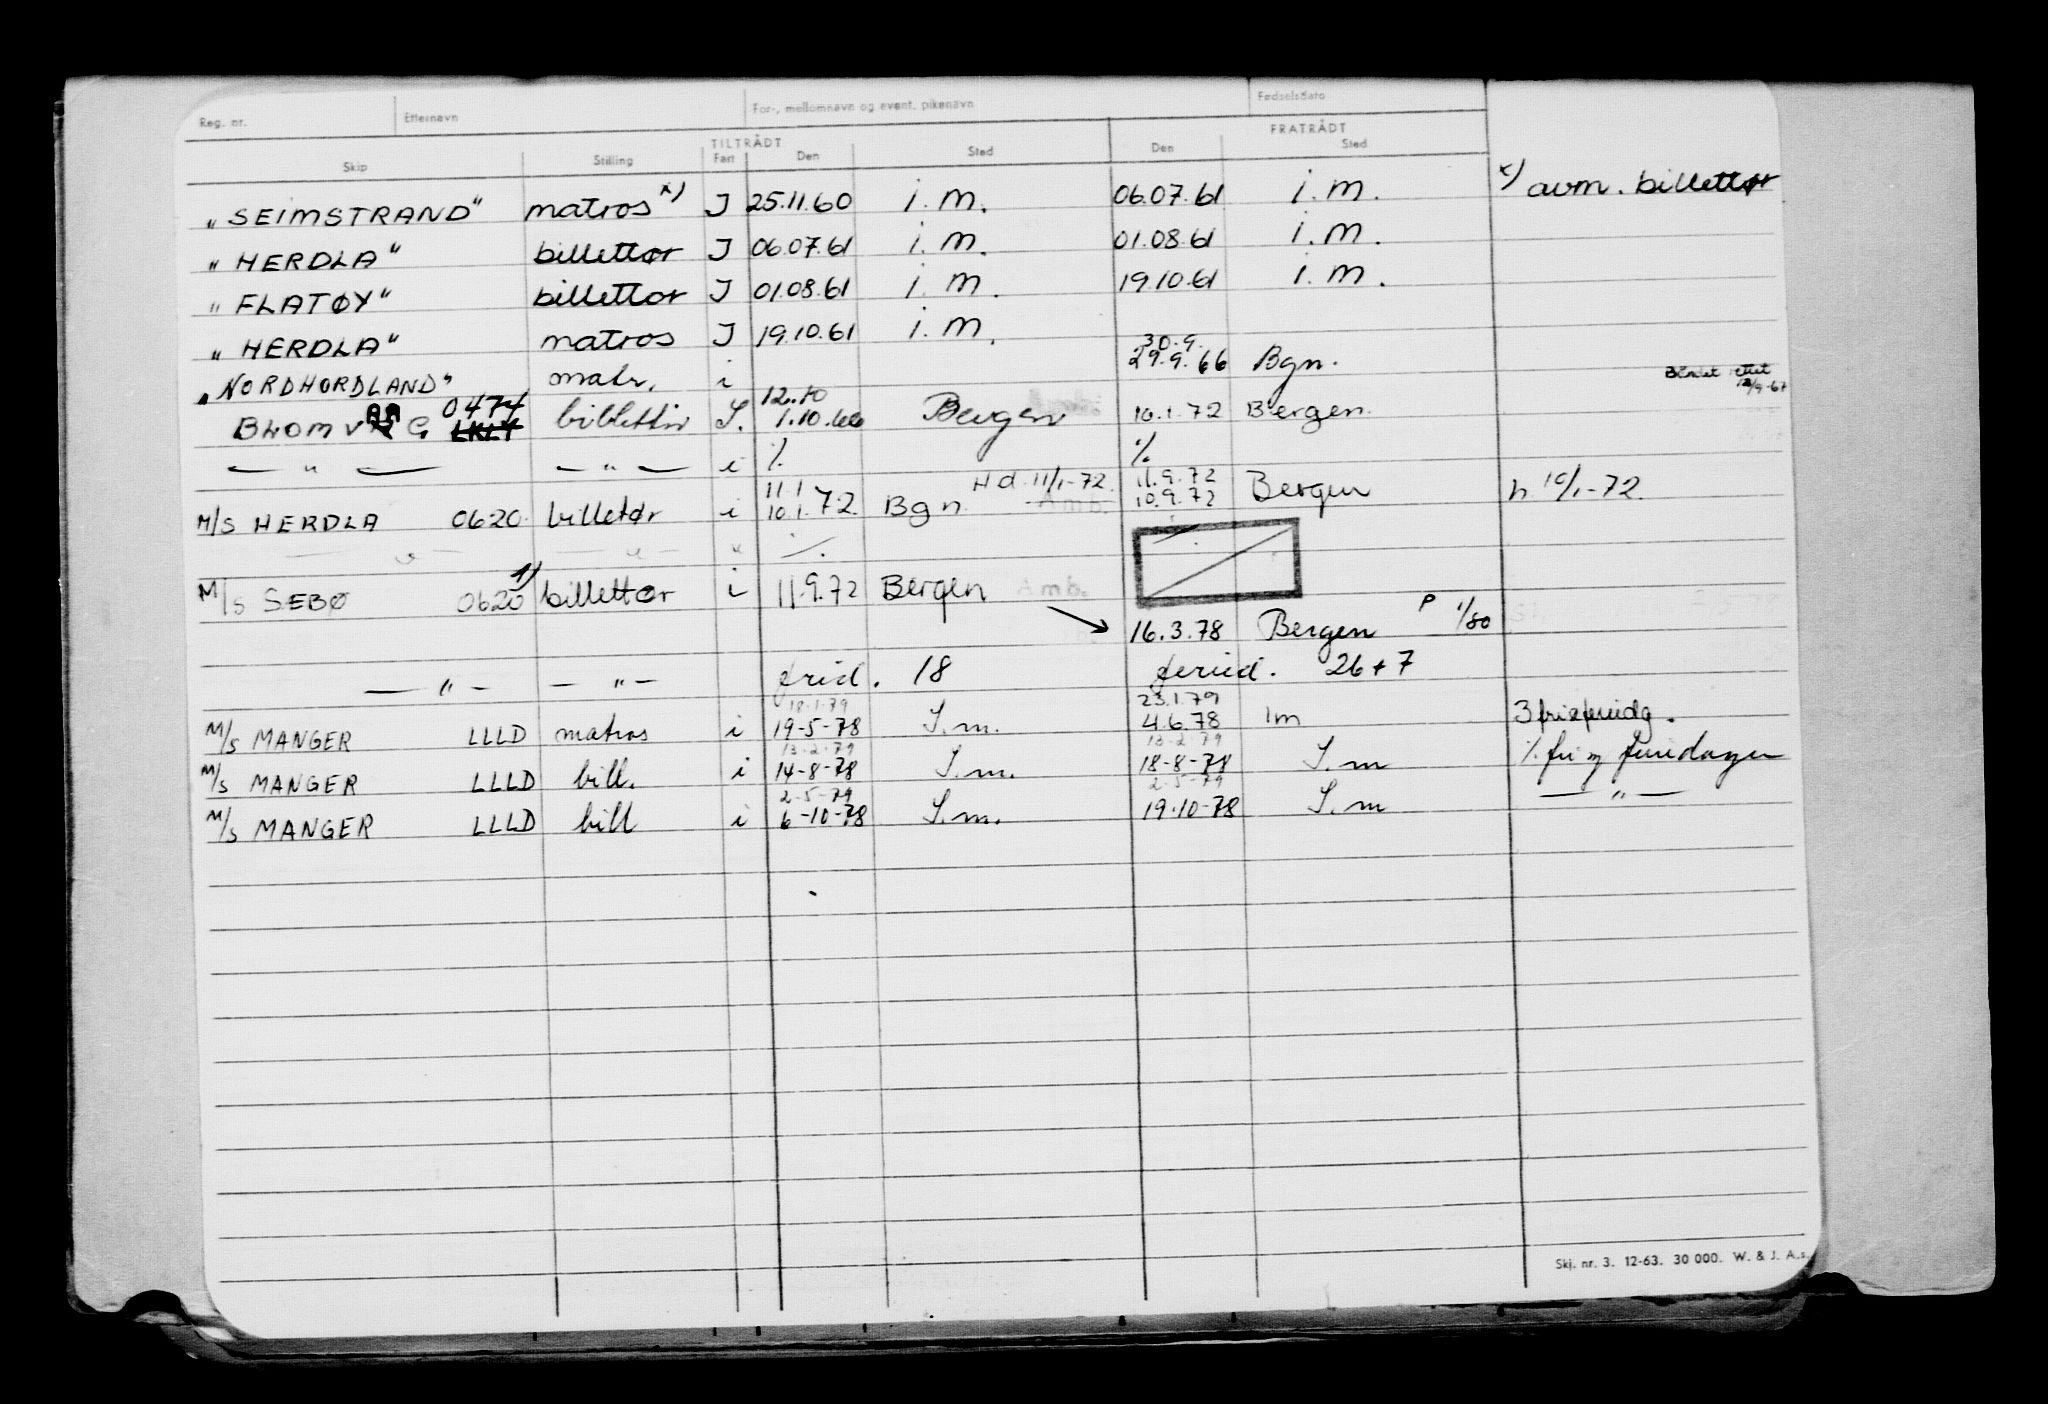 Reg. nr. Etternavn For-, mellomnavn og event. pikenavn Fødselsdato
TILTRÅDT FRATRÅDT
Skip Stilling Fart Den Sted Den Sted
"SEIMSTRAND" matros x) I 25.11.60 i. m. 06.07.61 i. m. x) avm. billettør
"HERDLA" billettør I 06.07.61 i. m. 01.08.61 i. m.
"FLATØY" billettør I 01.08.61 i. m. 19.10.61 i. m.
"HERDLA" matros I 19.10.61 i. m.
30.9.
"NORDHORDLAND" matr. i 29.9.66 Bgn.
12.10
0474 1.10.66 Bergen 10.1.72 Bergen
— " — — " — i % %
11.1 H d. 11/1-72 11.9.72
M/S HERDLA 0620 billetør i 10.1.72 Bgn Amb. 10.9.72 Bergen h 10/1-72.
— " — — " — " %
M/S SEBØ 0620 1) billettør i 11.9.72 Bergen Amb.
16.3.78 Bergen P 1/80
— " — — " — frid. 18 feried. 26+7
18.1.79 23.1.79
M/S MANGER LLLD matros i 19-5-78 I.m. 4.6.78 Im
13-2-79 13-2-79
M/S MANGER LLLD bill. i 14-8-78 I.m. 18-8-78 I.m % fri og feriedager
2-5-79 2-5-79
M/S MANGER LLLD bill i 6-10-78 I.m. 19.10-78 I.m — " —
Skj. nr. 3. 12-63. 30 000. W. & J. A.s.